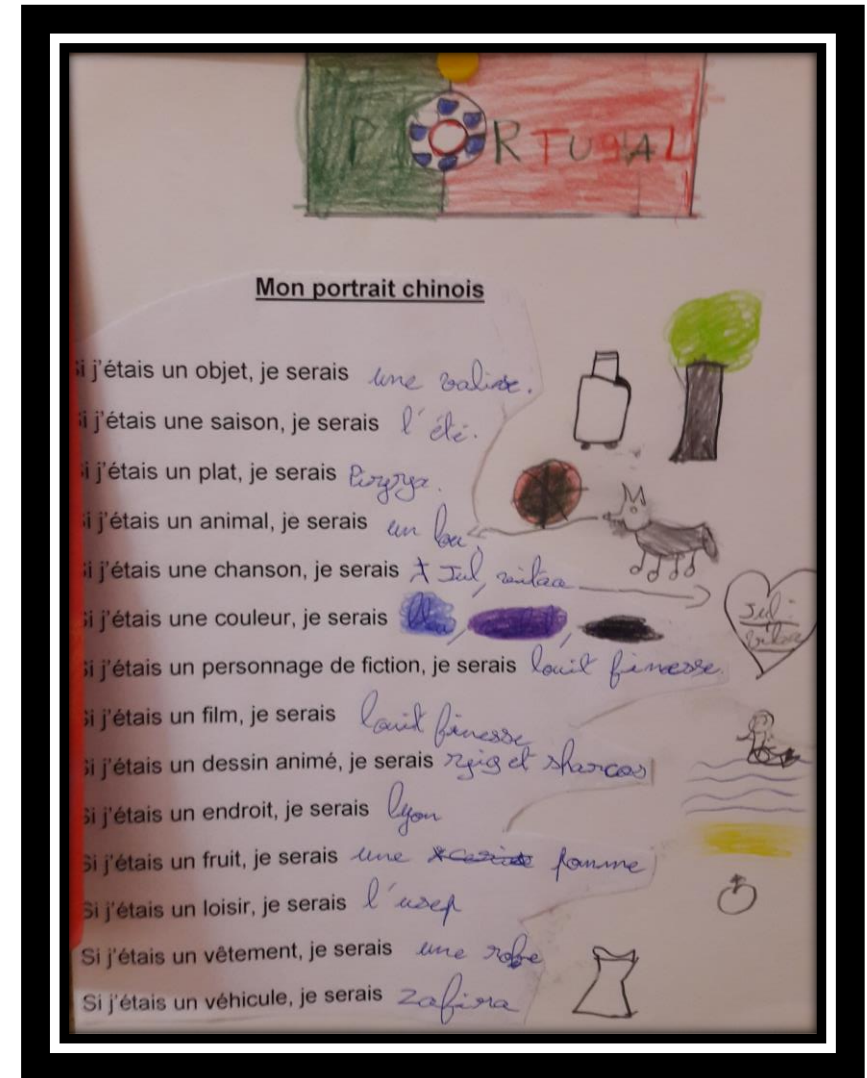 PORTUGAL
Mon portrait chinois
Si j'étais un objet, je serais une valise.
Si j'étais une saison, je serais l'été.
Si j'étais un plat, je serais
Si j'étais un animal, je serais un lou
Si j'étais une chanson, je serais Jul,
Jul
Si j'étais une couleur, je serais
Si j'étais un personnage de fiction, je serais louit finesse.
Si j'étais un film, je serais louit finesse
Si j'étais un dessin animé, je serais et sharcos
Si j'étais un endroit, je serais lyon
Si j'étais un fruit, je serais une pomme
Si j'étais un loisir, je serais l'usep
Si j'étais un vêtement, je serais une robe
Si j'étais un véhicule, je serais zafira